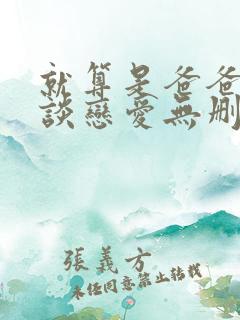 就算是爸爸
談戀愛無刪
張義方
未經同意禁止轉載